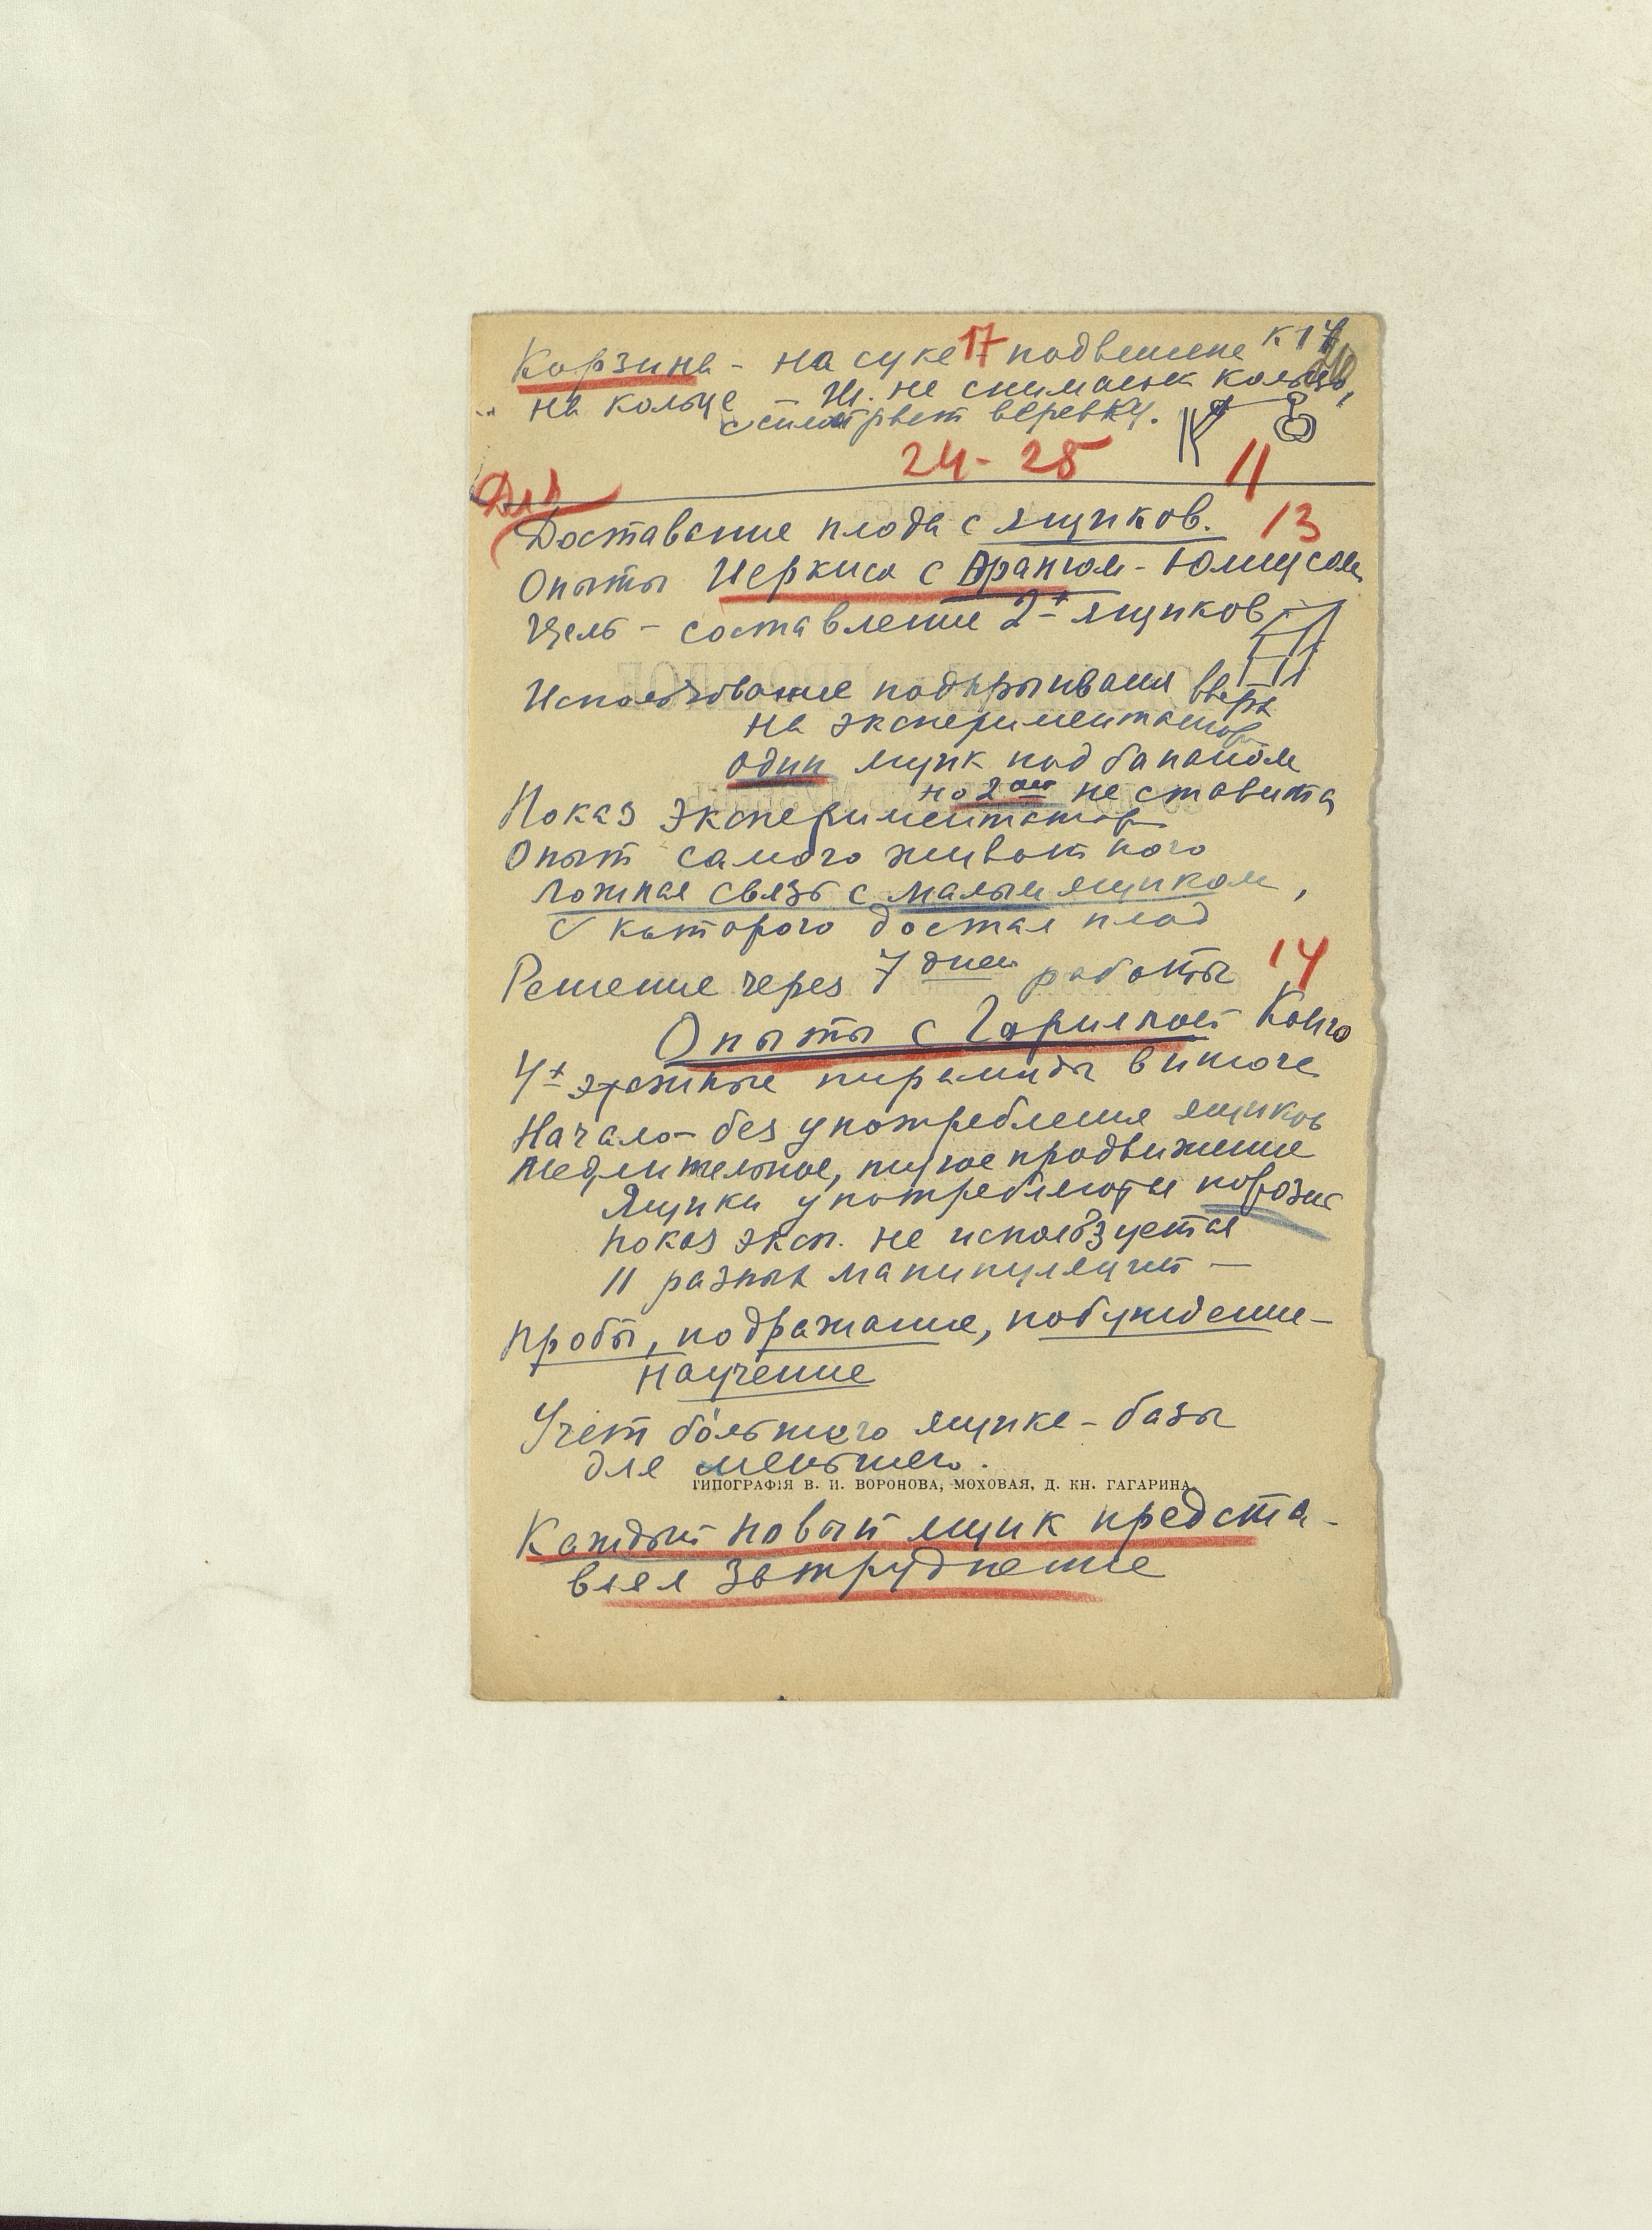 Корзина - на суке 17 подвешена к 17
на кольце - Ш. не снимает кольцо,
а силой рвет веревку.
24 - 25 11
Доставание плода с ящиков. 13
Опыты Иеркиса с Орангом - Юлиусом
Цель - составление 2х ящиков
Использование подпрыгивания вверх
на экспериментатора
один ящик под бананом
но 2ой не ставит
Показ экспериментатора
Опыт самого животного
Ложная связь с малым ящиком,
с которого достал плод
Решение через 7 дней работы 14
Опыты с Гориллой Конго
4х этажные пирамиды в итоге
Начало - без употребления ящиков
Медлительное, тугое продвижение
Ящики употребляются
показ эксп. не используется
11 разных манипуляций -
Пробы, подражание, побуждение -
научение
Учет большого ящика - базы
для меньшего.
ТИПОГРАФІЯ В. И. ВОРОНОВА, МОХОВАЯ, Д. КН. ГАГАРИНА.
Каждый новый ящик предста-
влял затруднение